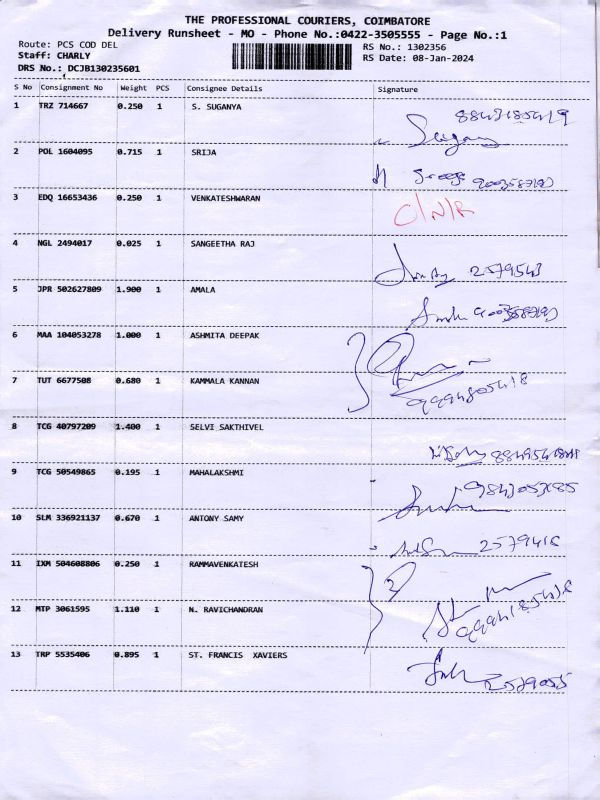 THE PROFESSIONAL COURIERS, COIMBATORE
Delivery Runsheet - MO - Phone No.:0422-3505555 - Page No.:1
Route: PCS COD DEL
RS No.: 1302356
Staff: CHARLY
RS Date: 08-Jan-2024
DRS No.: DCJB130235601
S No Consignment No Weight PCS Consignee Details Signature
1 TRZ 714667 0.250 1 S. SUGANYA
2 POL 1604095 0.715 1 SRIJA
3 EDQ 16653436 0.250 1 VENKATESHWARAN C/N/R
4 NGL 2494017 0.025 1 SANGEETHA RAJ 2579543
5 JPR 502627809 1.900 1 AMALA
6 MAA 104053278 1.000 1 ASHMITA DEEPAK
7 TUT 6677508 0.680 1 KAMMALA KANNAN
8 TCG 40797209 1.400 1 SELVI SAKTHIVEL
9 TCG 50549865 0.195 1 MAHALAKSHMI
10 SLM 336921137 0.670 1 ANTONY SAMY 2579416
11 IXM 504608806 0.250 1 RAMMAVENKATESH
12 MTP 3061595 1.110 1 N. RAVICHANDRAN
13 TRP 5535406 0.895 1 ST. FRANCIS XAVIERS